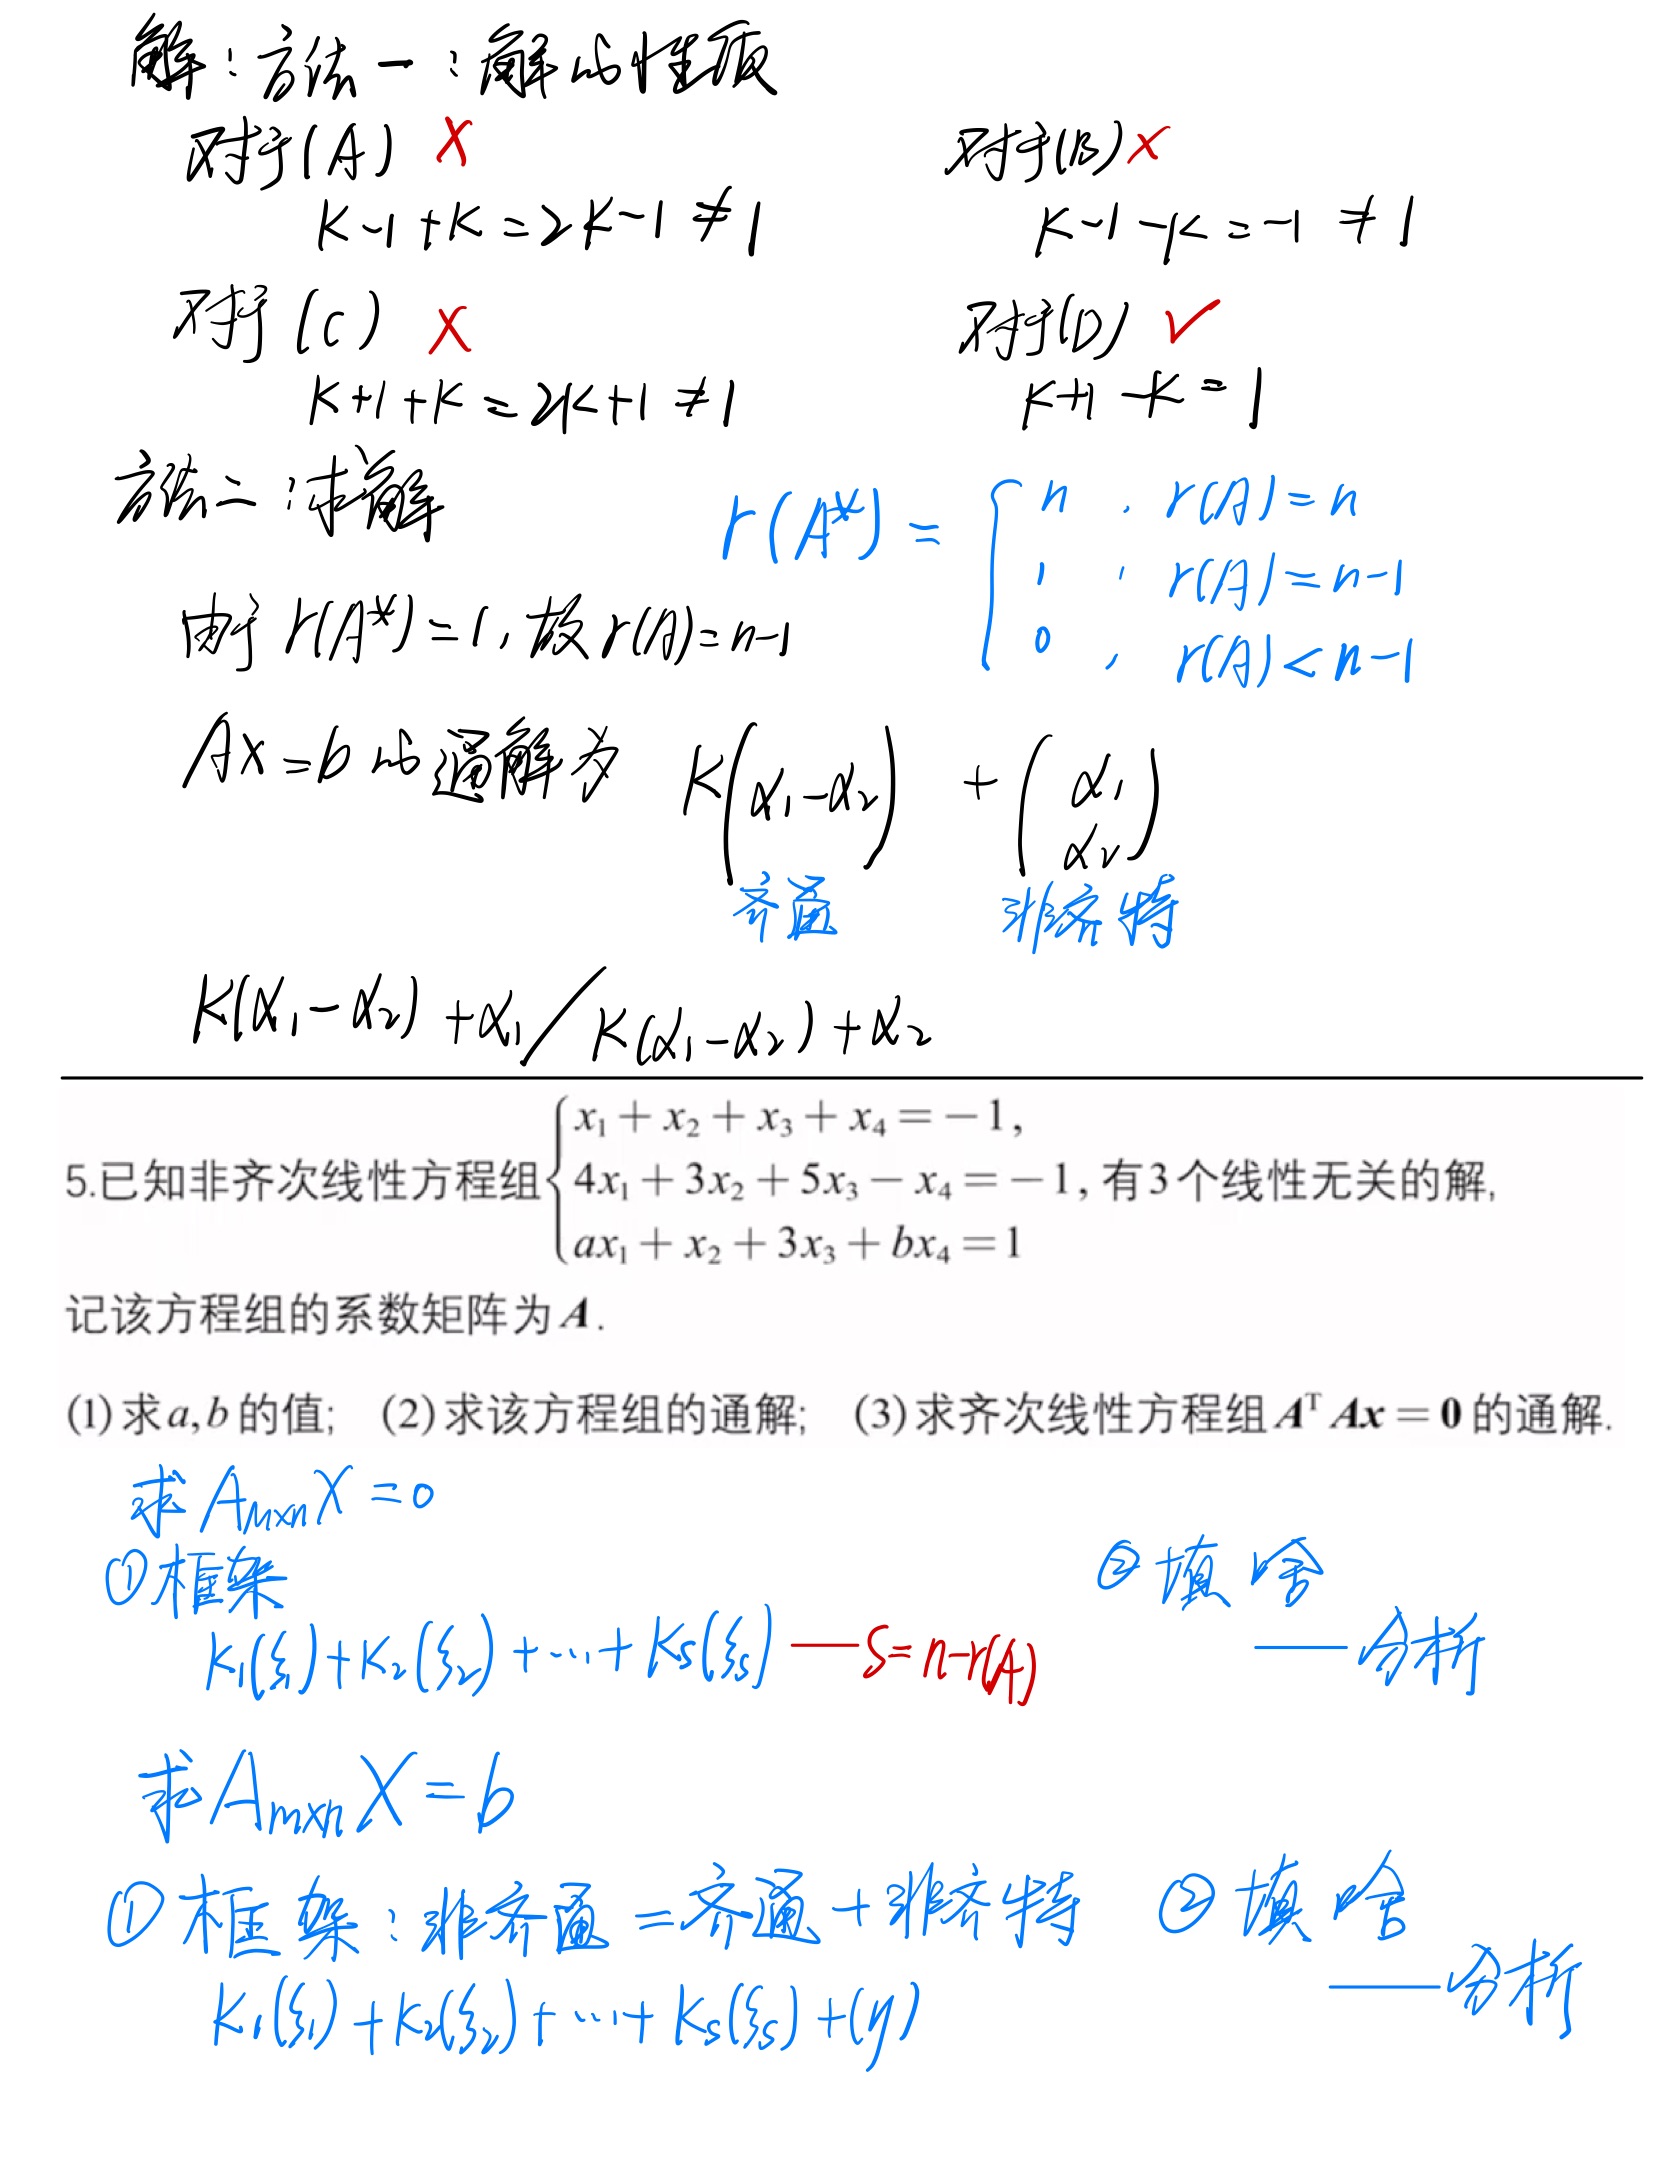 解：方法一：解的性质
对于(A) ×
k-1+k=2k-1≠1
对于(B) ×
k-1-k=-1≠1
对于(C) ×
k+1+k=2k+1≠1
对于(D) ✓
k+1-k=1
方法二：求解
r(A*) = { n , r(A)=n
1 , r(A)=n-1
0 , r(A)<n-1
由于 r(A*)=1, 故 r(A)=n-1
Ax=b 的通解为 k(α₁-α₂) + (α₁
α₂)
齐通 非齐特
k(α₁-α₂)+α₁ / k(α₁-α₂)+α₂
5.已知非齐次线性方程组 { x₁+x₂+x₃+x₄=-1,
4x₁+3x₂+5x₃-x₄=-1, 有3个线性无关的解,
ax₁+x₂+3x₃+bx₄=1
记该方程组的系数矩阵为A.
(1)求a,b的值; (2)求该方程组的通解; (3)求齐次线性方程组AᵀAx=0的通解.
求 AₘₓₙX=0
①框架 ②填啥
k₁(ξ₁)+k₂(ξ₂)+…+kₛ(ξₛ) —— s=n-r(A) ——分析
求 AₘₓₙX=b
①框架：非齐通=齐通+非齐特 ②填啥
——分析
k₁(ξ₁)+k₂(ξ₂)+…+kₛ(ξₛ)+(η)